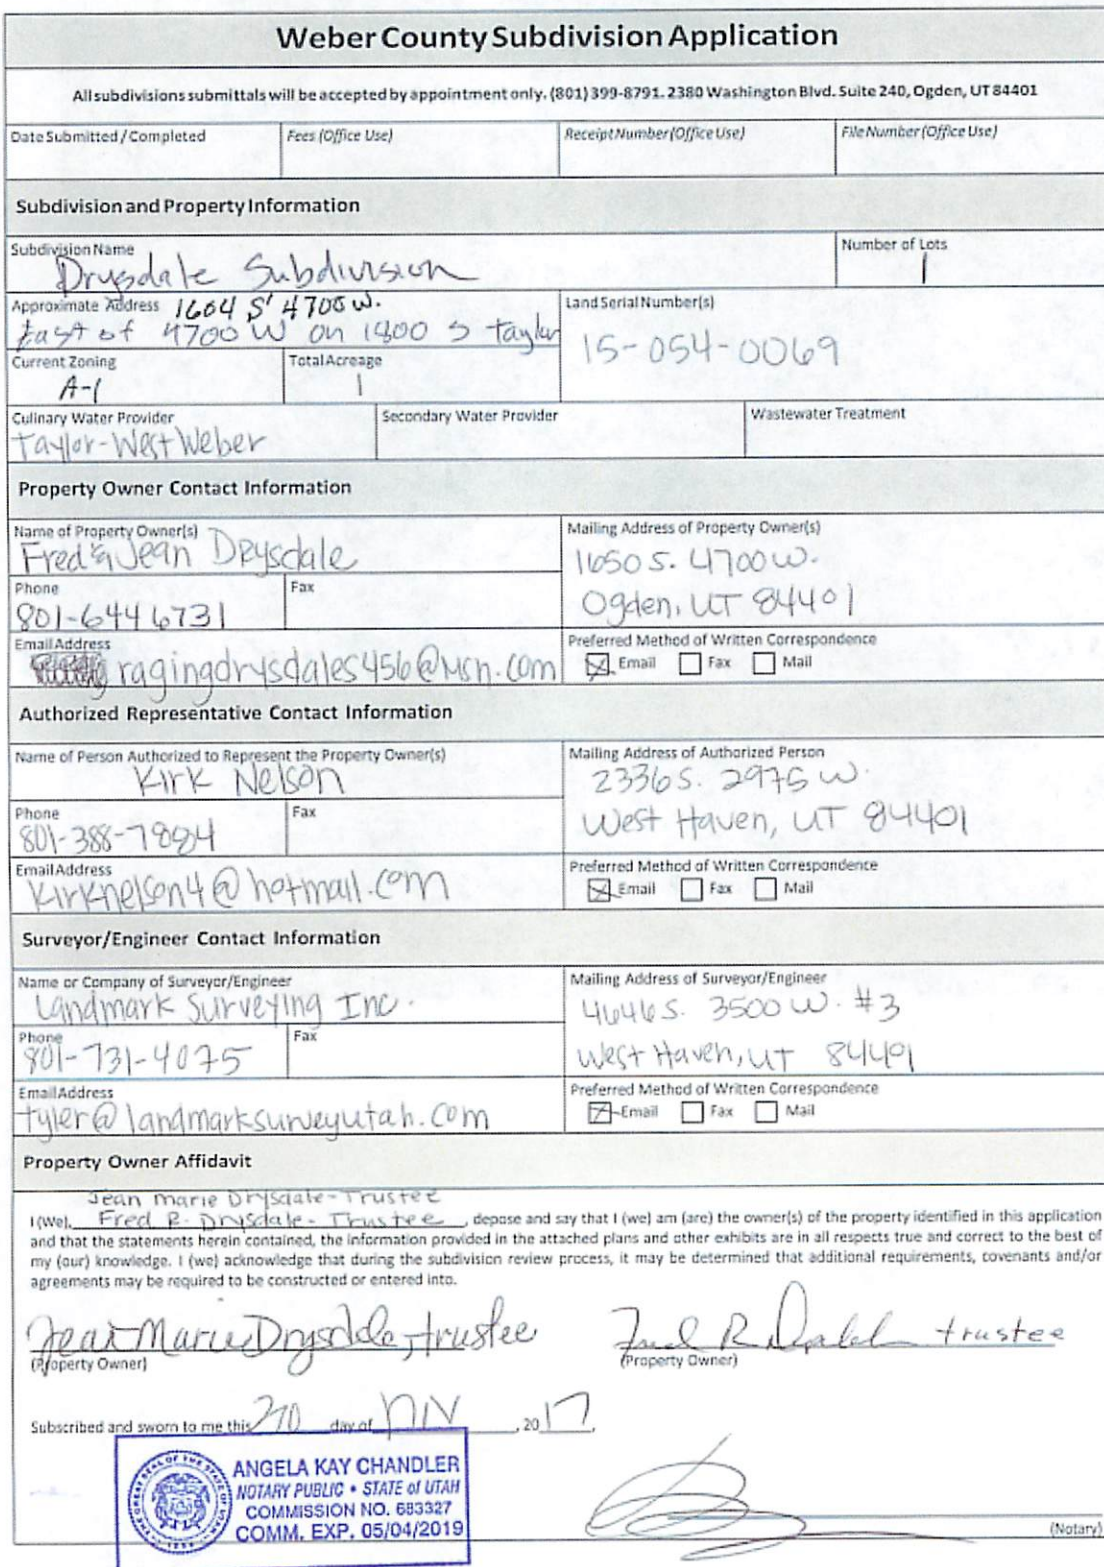 Weber County Subdivision Application
All subdivisions submittals will be accepted by appointment only. (801) 399-8791. 2380 Washington Blvd. Suite 240, Ogden, UT 84401
Date Submitted / Completed
Fees (Office Use)
Receipt Number (Office Use)
File Number (Office Use)
Subdivision and Property Information
Subdivision Name
Drysdale Subdivision
Number of Lots
1
Approximate Address 1604 S 4700 W.
East of 4700 W on 1800 S Taylor
Land Serial Number(s)
15-054-0069
Current Zoning
A-1
Total Acreage
1
Culinary Water Provider
Taylor-West Weber
Secondary Water Provider
Wastewater Treatment
Property Owner Contact Information
Name of Property Owner(s)
Fred & Jean Drysdale
Mailing Address of Property Owner(s)
1650 S. 4700 W.
Ogden, UT 84401
Phone
801-644 6731
Fax
Email Address
ragingdrysdales456@msn.com
Preferred Method of Written Correspondence
Email Fax Mail
Authorized Representative Contact Information
Name of Person Authorized to Represent the Property Owner(s)
Kirk Nelson
Mailing Address of Authorized Person
2336 S. 2975 W.
West Haven, UT 84401
Phone
801-388-7884
Fax
Email Address
kirknelson4@hotmail.com
Preferred Method of Written Correspondence
Email Fax Mail
Surveyor/Engineer Contact Information
Name or Company of Surveyor/Engineer
Landmark Surveying Inc.
Mailing Address of Surveyor/Engineer
4646 S. 3500 W. #3
West Haven, UT 84401
Phone
801-731-4075
Fax
Email Address
tyler@landmarksurveyutah.com
Preferred Method of Written Correspondence
Email Fax Mail
Property Owner Affidavit
Jean Marie Drysdale-Trustee
I (We), Fred R. Drysdale-Trustee, depose and say that I (we) am (are) the owner(s) of the property identified in this application
and that the statements herein contained, the information provided in the attached plans and other exhibits are in all respects true and correct to the best of
my (our) knowledge. I (we) acknowledge that during the subdivision review process, it may be determined that additional requirements, covenants and/or
agreements may be required to be constructed or entered into.
Jean Marie Drysdale, trustee
Fred R Drysdale trustee
(Property Owner)
(Property Owner)
Subscribed and sworn to me this day of , 20 17.
THE GREAT SEAL OF THE STATE OF UTAH
1896
ANGELA KAY CHANDLER
NOTARY PUBLIC • STATE of UTAH
COMMISSION NO. 683327
COMM. EXP. 05/04/2019
(Notary)